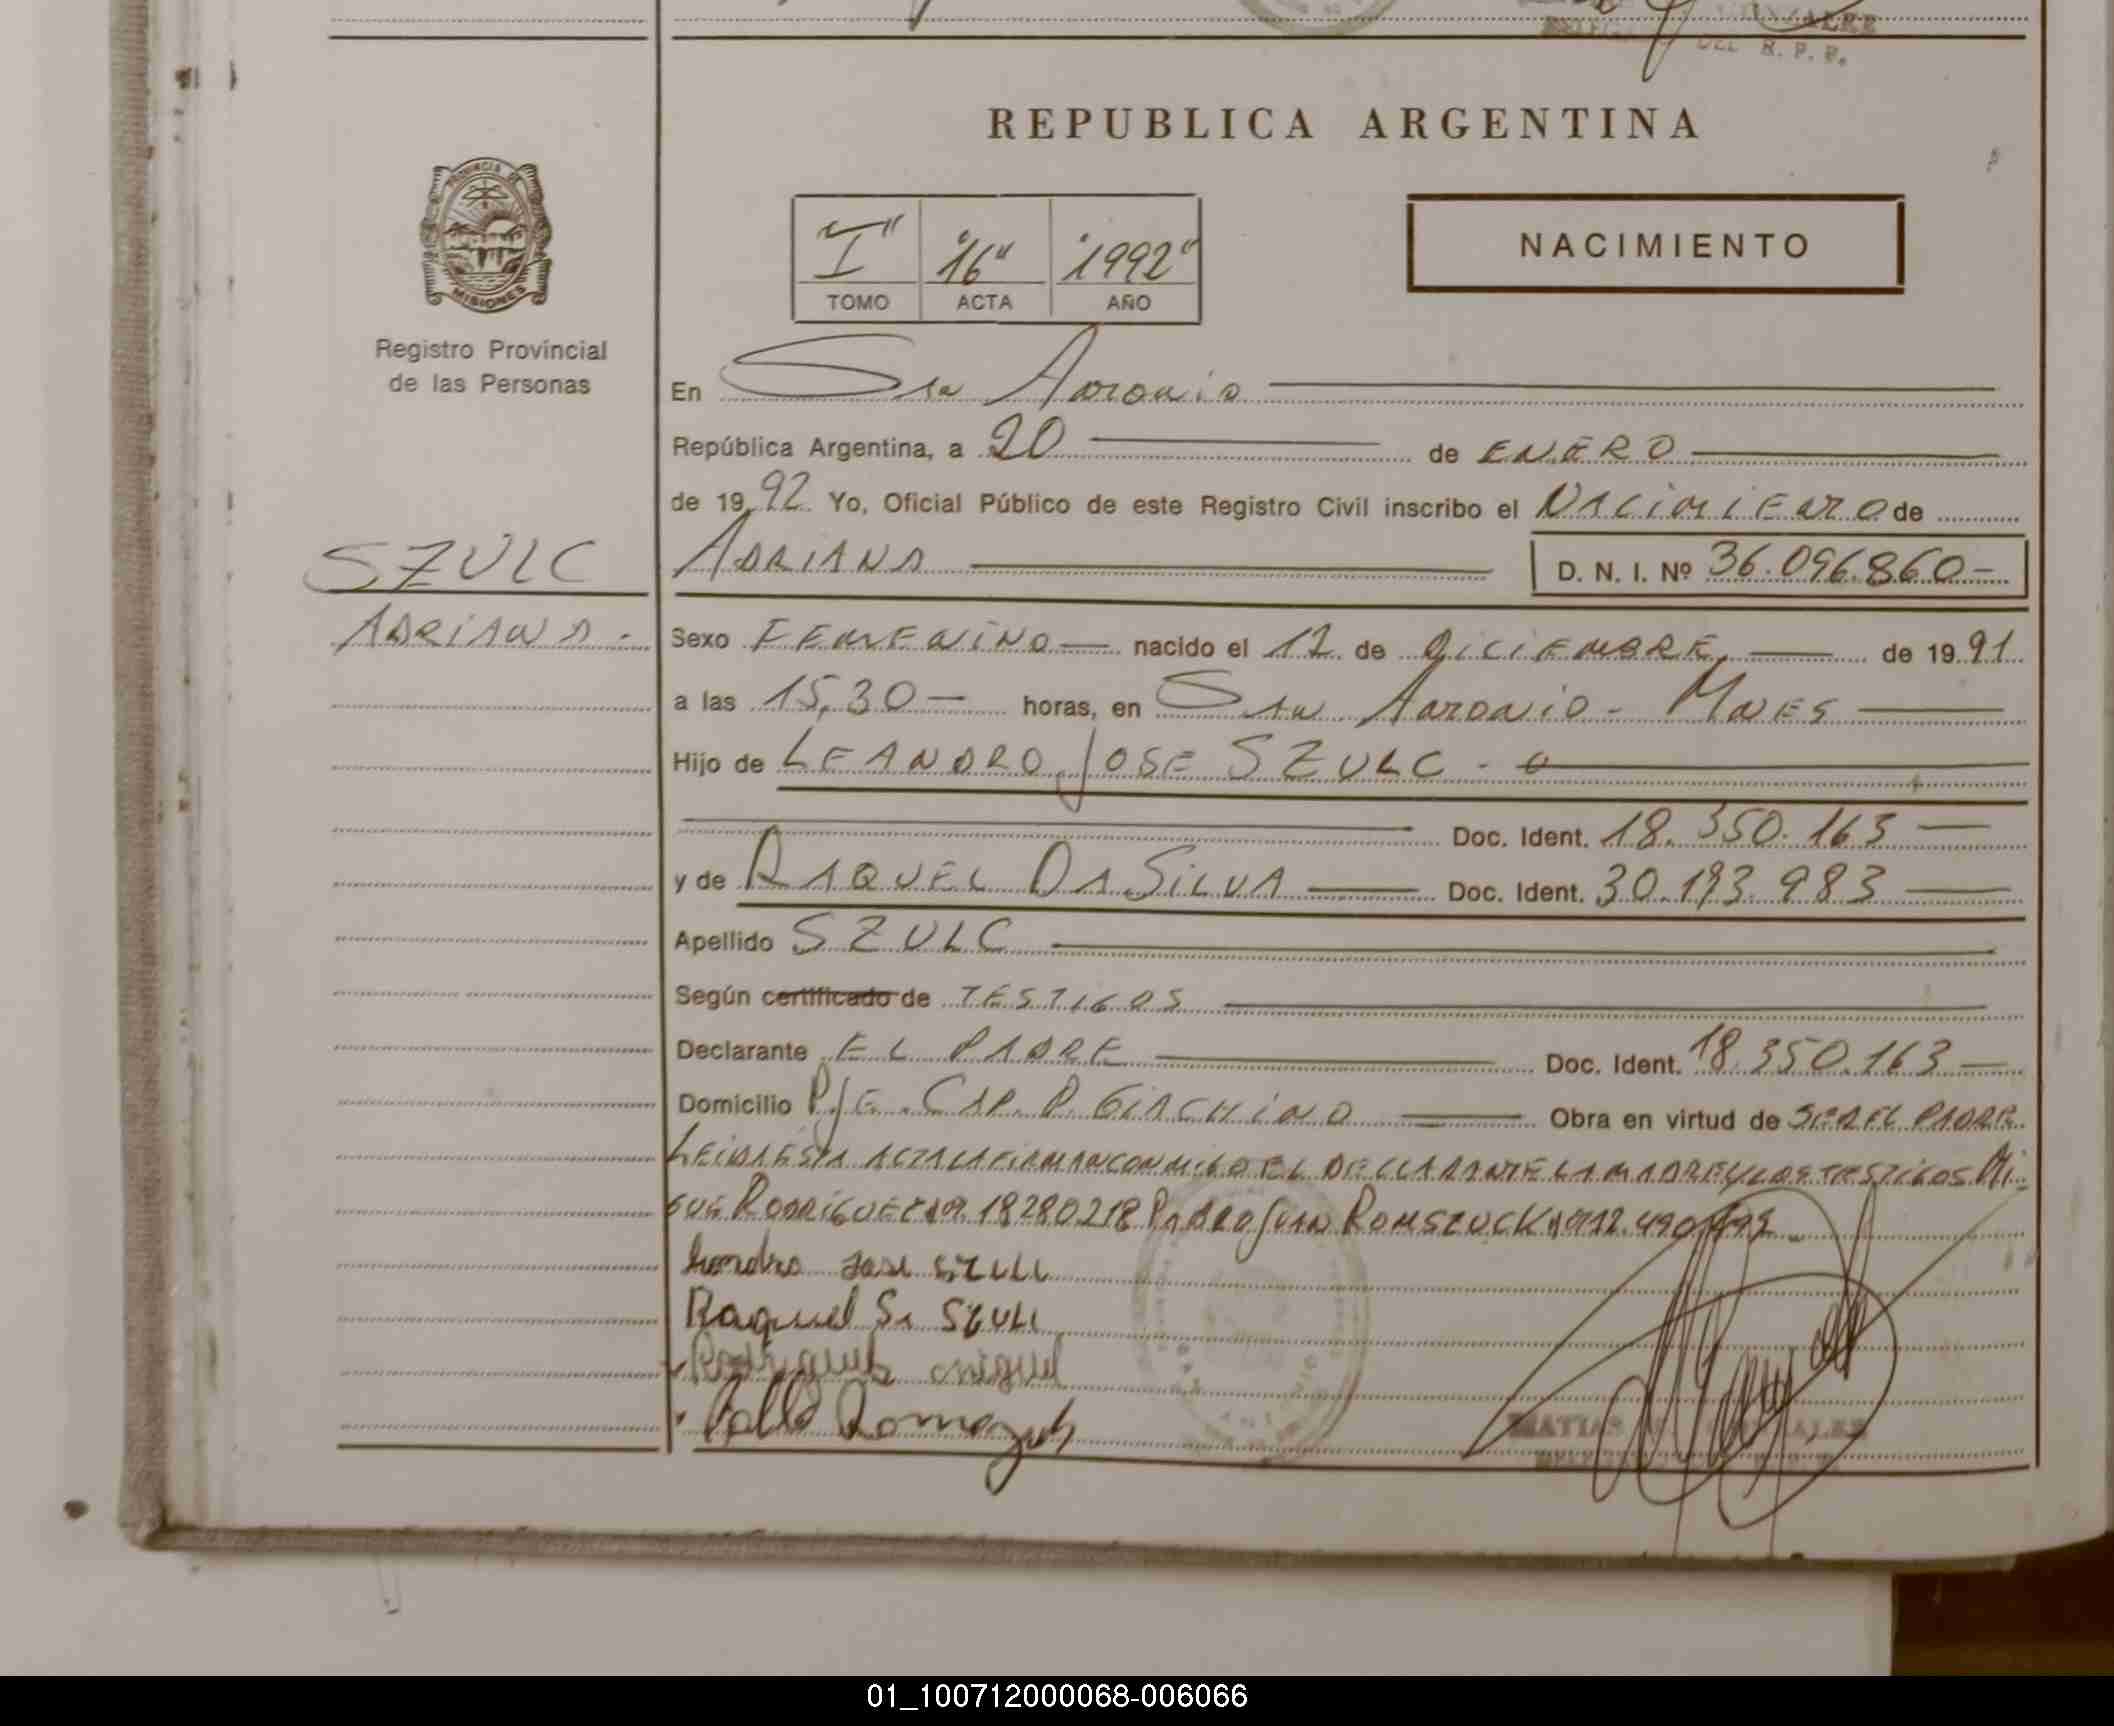 GONZALEZ
DEL R. P. P.
REPUBLICA ARGENTINA
PROVINCIA DE
MISIONES
Registro Provincial
de las Personas
"I" "16" "1992"
TOMO ACTA AÑO
NACIMIENTO
En San Antonio
República Argentina, a 20 de ENERO
de 1992 Yo, Oficial Público de este Registro Civil inscribo el NACIMIENTO de
SZULC
ADRIANA.
ADRIANA D. N. I. Nº 36.096.860-
Sexo FEMENINO nacido el 12 de DICIEMBRE de 1991
a las 15,30 horas, en San Antonio - Mnes
Hijo de LEANDRO JOSE SZULC.
Doc. Ident. 18.350.163
y de RAQUEL DA SILVA Doc. Ident. 30.193.983
Apellido SZULC
Según certificado de TESTIGOS
Declarante EL PADRE Doc. Ident. 18.350.163
Domicilio PJE. CAP. P. GIACHINO Obra en virtud de SER EL PADRE
LEIDA ESTA ACTA LA FIRMAN CONMIGO EL DECLARANTE LA MADRE Y LOS TESTIGOS Mi-
GUEL RODRIGUEZ 18280218 JUAN ROMSZUCK 12.490
Jose SZULC
Raquel SZULC
Rodriguez Miguel
MATIAS